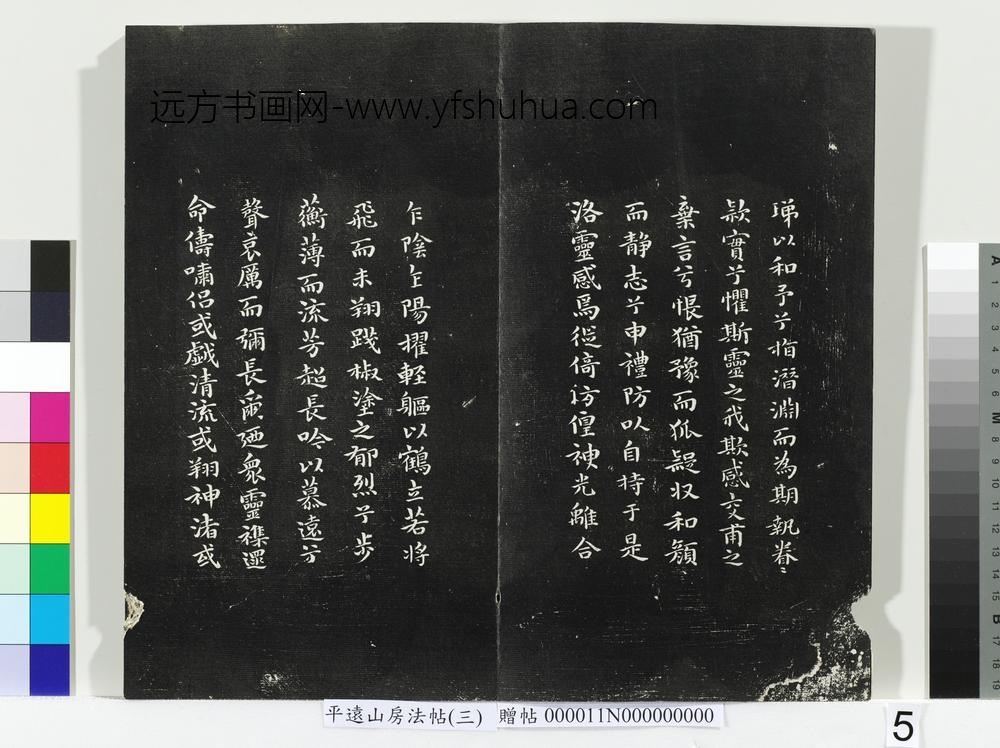 远方书画网-www.yfshuhua.com
珶以和予兮指潛淵而為期執眷〻
款實兮懼斯靈之我欺感交甫之
棄言兮悵猶豫而狐疑収和顏
而靜志兮申禮防以自持于是
洛靈感焉徙倚仿偟神光離合
乍陰乍陽擢輕軀以鶴立若將
飛而未翔踐椒塗之郁烈兮步
蘅薄而流芳超長吟以慕遠兮
聲哀厲而彌長爾迺衆靈襍遝
命儔嘯侶或戲清流或翔神渚或
平遠山房法帖(三) 贈帖 000011N000000000
5
A 1 2 3 4 5 6 M 8 9 10 11 12 13 14 15 B 17 18 19